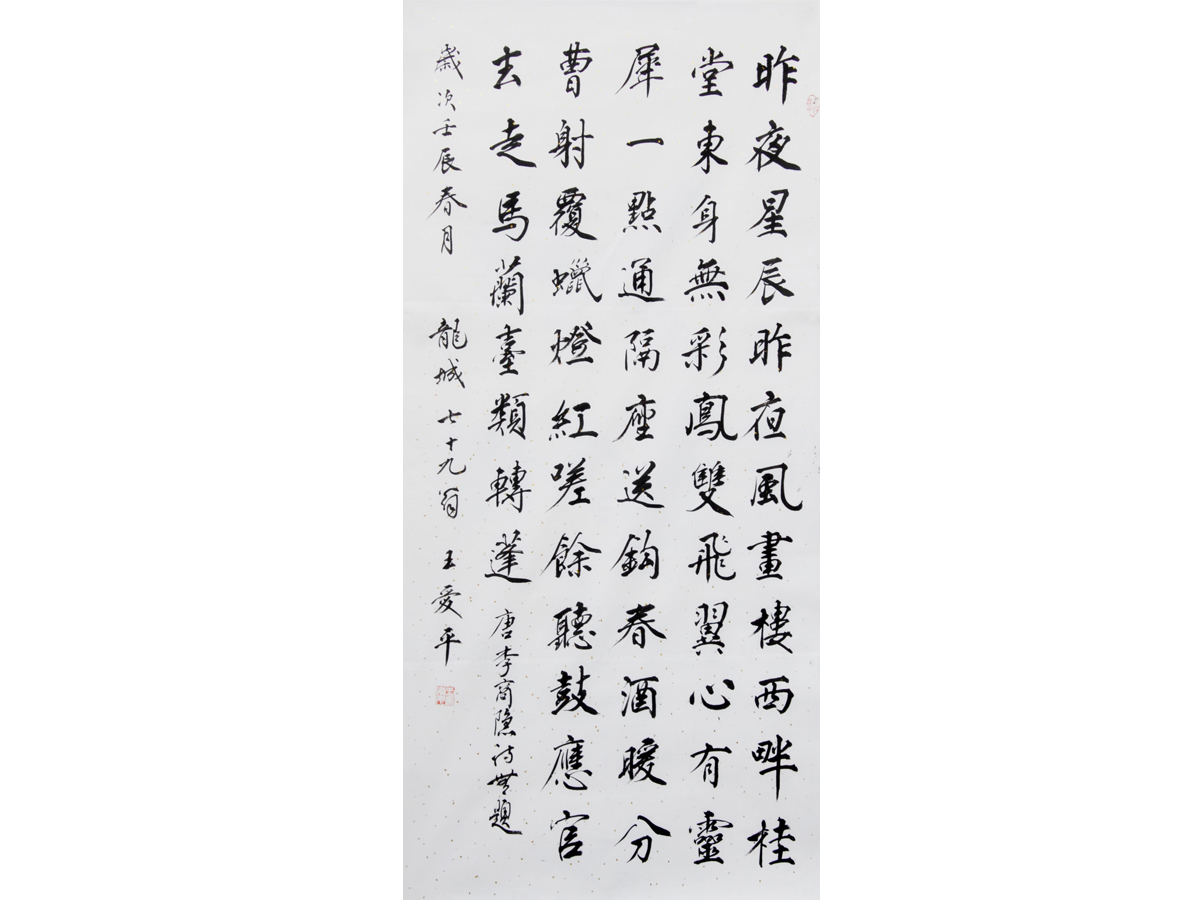 昨夜星辰昨夜風畫樓西畔桂
堂東身無彩鳳雙飛翼心有靈
犀一點通隔座送鈎春酒暖分
曹射覆蠟燈紅嗟餘聽鼓應官
去走馬蘭臺類轉蓬 唐李商隐诗無題
歲次壬辰春月 龍城七十九翁 王愛平